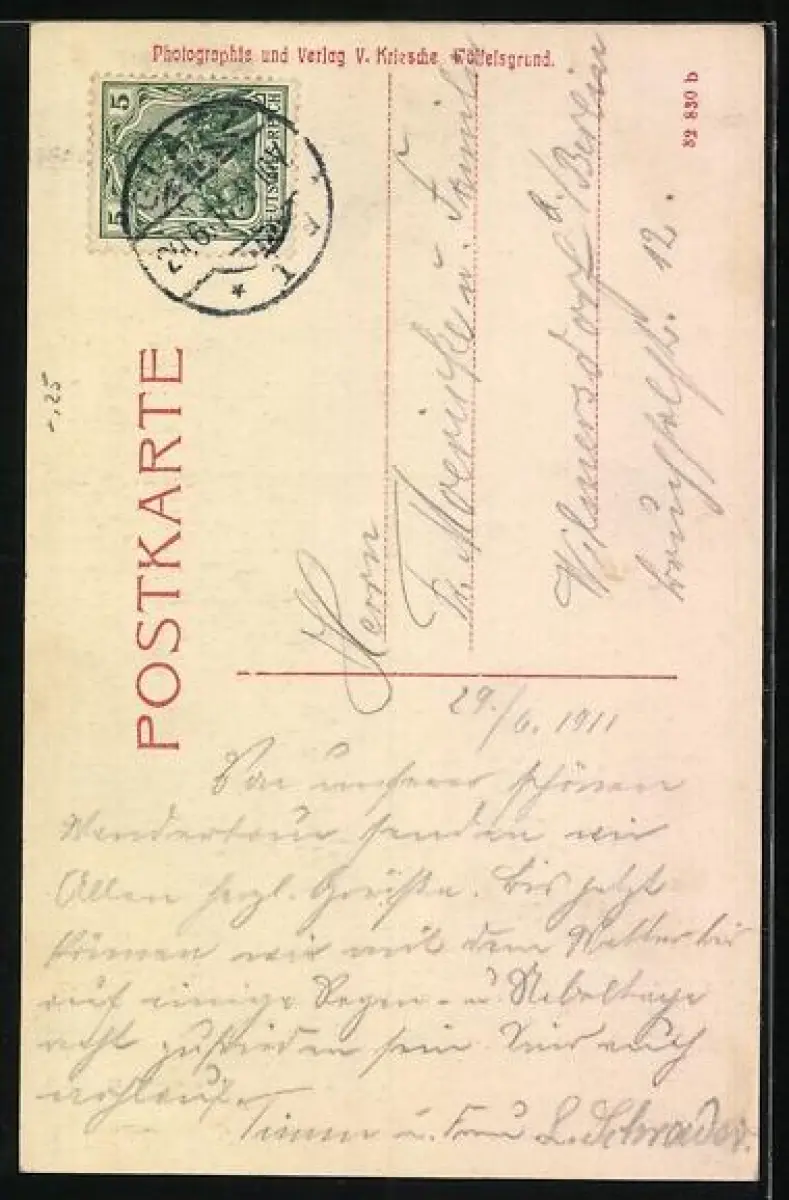 Photographie und Verlag V. Kriesche Wölfelsgrund.
82 830 b
5
5
DEUTSCHES REICH
29.6.11
* 1
-,25
POSTKARTE
Herrn
Fr. Moericke u. Familie
Wilmersdorf b./Berlin
12.
29./6. 1911
Von unserer schönen
Wandertour senden wir
Allen herzl. Grüße. Bis jetzt
können wir mit dem Wetter bis
auf einige Regen- u Nebeltage
recht zufrieden sein. Sind auch
wohlauf.
Timm u. Frau L. Schrader.